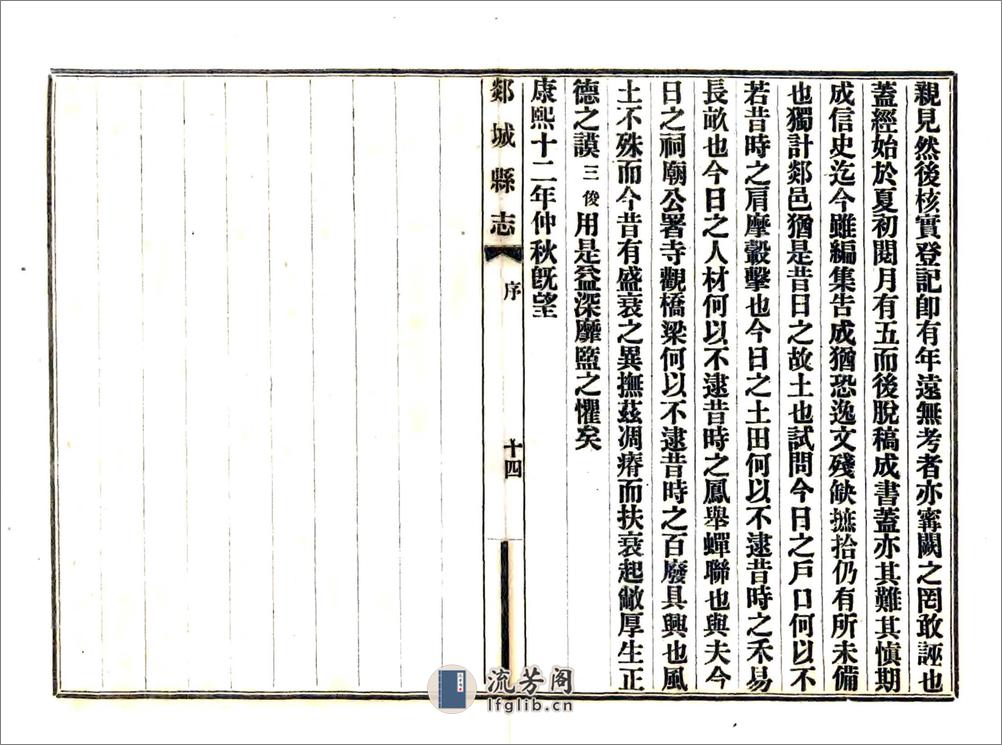 親見然後核實登記卽有年遠無考者亦寗闕之罔敢誣也
蓋經始於夏初閱月有五而後脫稿成書蓋亦其難其愼期
成信史迄今雖編集告成猶恐逸文殘缺摭拾仍有所未備
也獨計郯邑猶是昔日之故土也試問今日之戶口何以不
若昔時之肩摩轂擊也今日之土田何以不逮昔時之禾易
長畝也今日之人材何以不逮昔時之鳳舉蟬聯也與夫今
日之祠廟公署寺觀橋梁何以不逮昔時之百廢具興也風
土不殊而今昔有盛衰之異撫茲凋瘠而扶衰起敝厚生正
德之謨三俊用是益深靡盬之懼矣
康熙十二年仲秋旣望
郯城縣志
序
十四
流芳阁
lfglib.cn